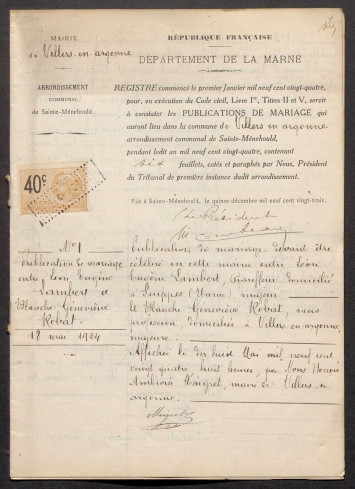 MAIRIE
de Villers-en-argonne
ARRONDISSEMENT
COMMUNAL
de Sainte-Ménehould.
40c
RÉPUBLIQUE FRANÇAISE
DÉPARTEMENT DE LA MARNE
REGISTRE commencé le premier Janvier mil neuf cent vingt-quatre,
pour, en exécution du Code civil, Livre 1er, Titres II et V, servir
à constater les PUBLICATIONS DE MARIAGE qui
auront lieu dans la commune de Villers en argonne
arrondissement communal de Sainte-Ménehould,
pendant ledit an mil neuf cent vingt-quatre, contenant
six feuillets, cotés et paraphés par Nous, Président
du Tribunal de première instance dudit arrondissement.
Fait à Sainte-Ménehould, le quinze décembre mil neuf cent vingt-trois.
Le Président
No 1
Publication de mariage
entre Léon Eugène
Lambert et
Blanche Geneviève
Robat.
18 mai 1924
Publication de mariage devant être
célébré en cette mairie entre Léon
Eugène Lambert, domicilié
à Suippes (Marne) majeur
et Blanche Geneviève Robat, sans
profession, domiciliée à Villers-en-argonne,
majeure.
Affichée le dix huit Mai mil neuf cent
vingt quatre, huit heures, par Nous Honoré
Ambroise Maigret, maire de Villers-en-
argonne.
Maigret